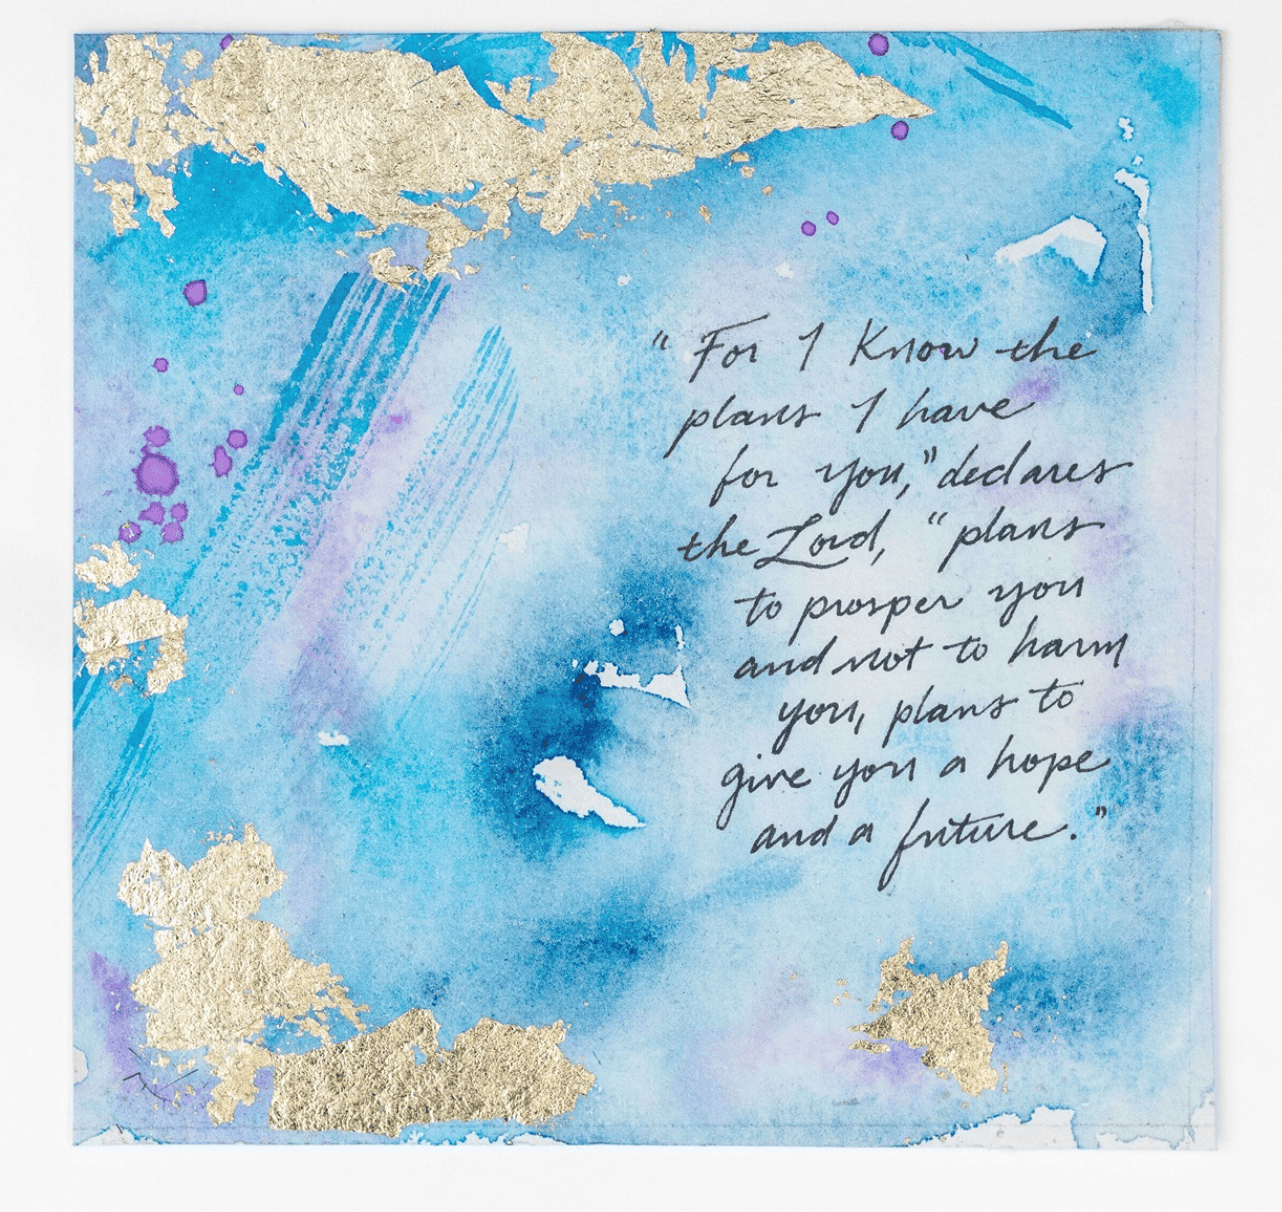 "For I Know the
plans I have
for you," declares
the Lord, "plans
to prosper you
and not to harm
you, plans to
give you a hope
and a future."